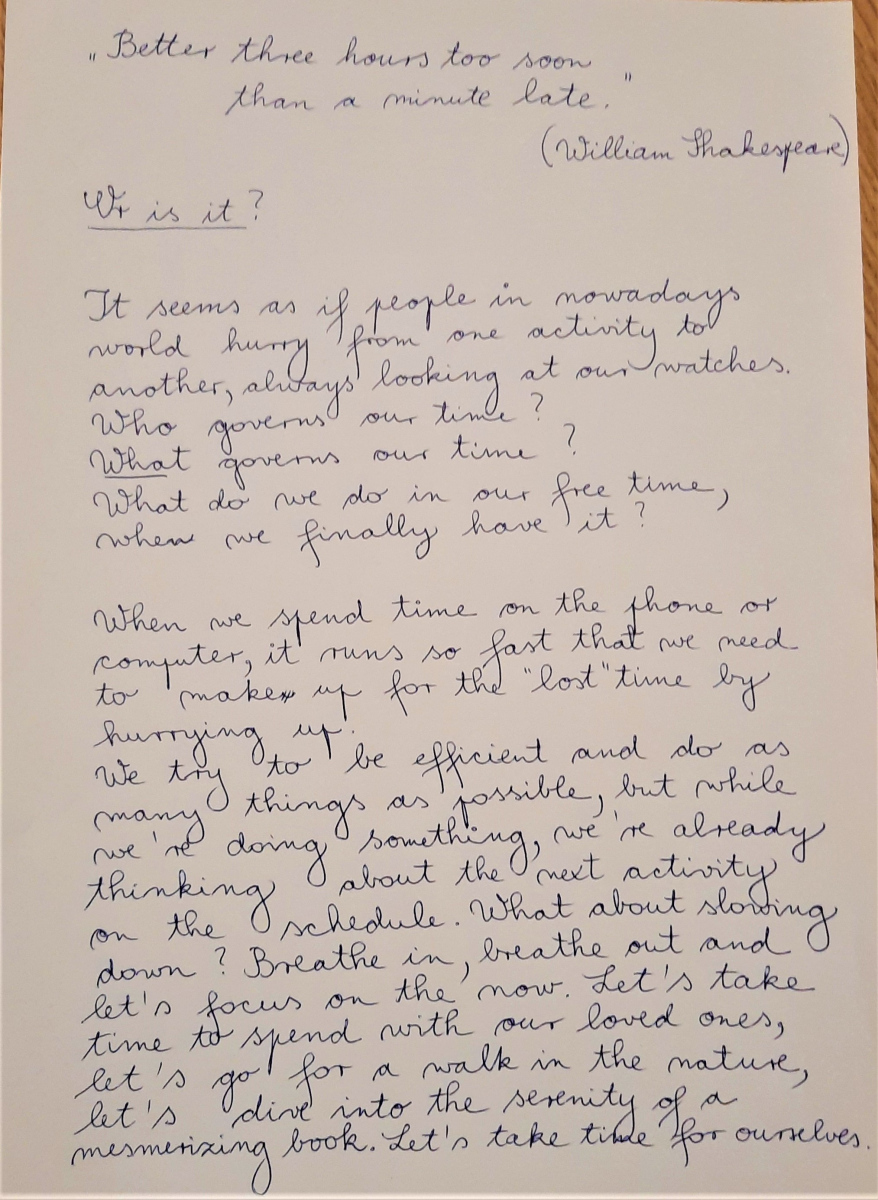 „Better three hours too soon
than a minute late."
(William Shakespeare)
Or is it?
It seems as if people in nowadays
world hurry from one activity to
another, always looking at our watches.
Who governs our time?
What governs our time?
What do we do in our free time,
when we finally have it?
When we spend time on the phone or
computer, it runs so fast that we need
to make up for the "lost" time by
hurrying up!
We try to be efficient and do as
many things as possible, but while
we're doing something, we're already
thinking about the next activity
on the schedule. What about slowing
down? Breathe in, breathe out and
let's focus on the now. Let's take
time to spend with our loved ones,
let's go for a walk in the nature,
let's dive into the serenity of a
mesmerizing book. Let's take time for ourselves.